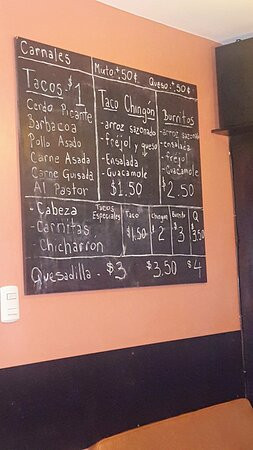 Carnales
Mixto +50¢ Queso: +.50¢
Tacos $1
Cerdo Picante
Barbacoa
Pollo Asado
Carne Asada
Carne Guisada
Al Pastor
Taco Chingón
-arroz sazonado
-frejol y queso
-Ensalada
-Guacamole
$1.50
Burritos
-arroz sazonado
-ensalada
-frejol
-Guacamole
$2.50
-Cabeza
-Carnitas
-Chicharrón
Tacos Especiales
Taco Chingón Burrito Q
$1.50 $2 $3 $3.50
Quesadilla - $3 $3.50 $4